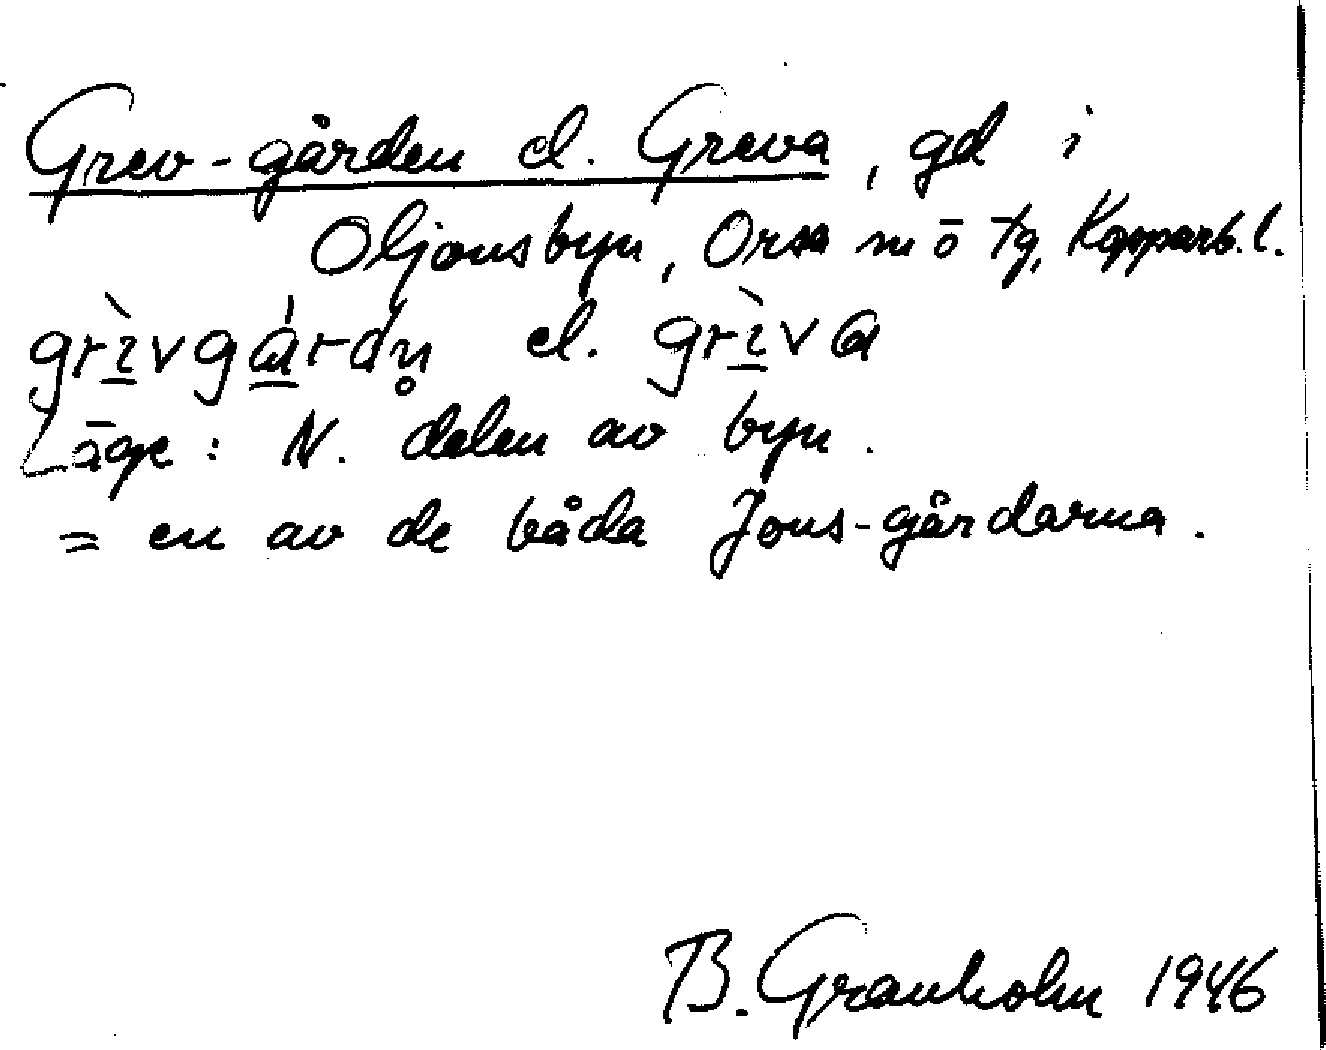 Grev-gården el. Greva, gd i
Oljonsbyn, Orsa m ö tg, Kopparb. l.
grì̱vgá̱rdn̥ el. grì̱va
Läge: N. delen av byn.
= en av de båda Jons-gårdarna.
B. Granholm 1946